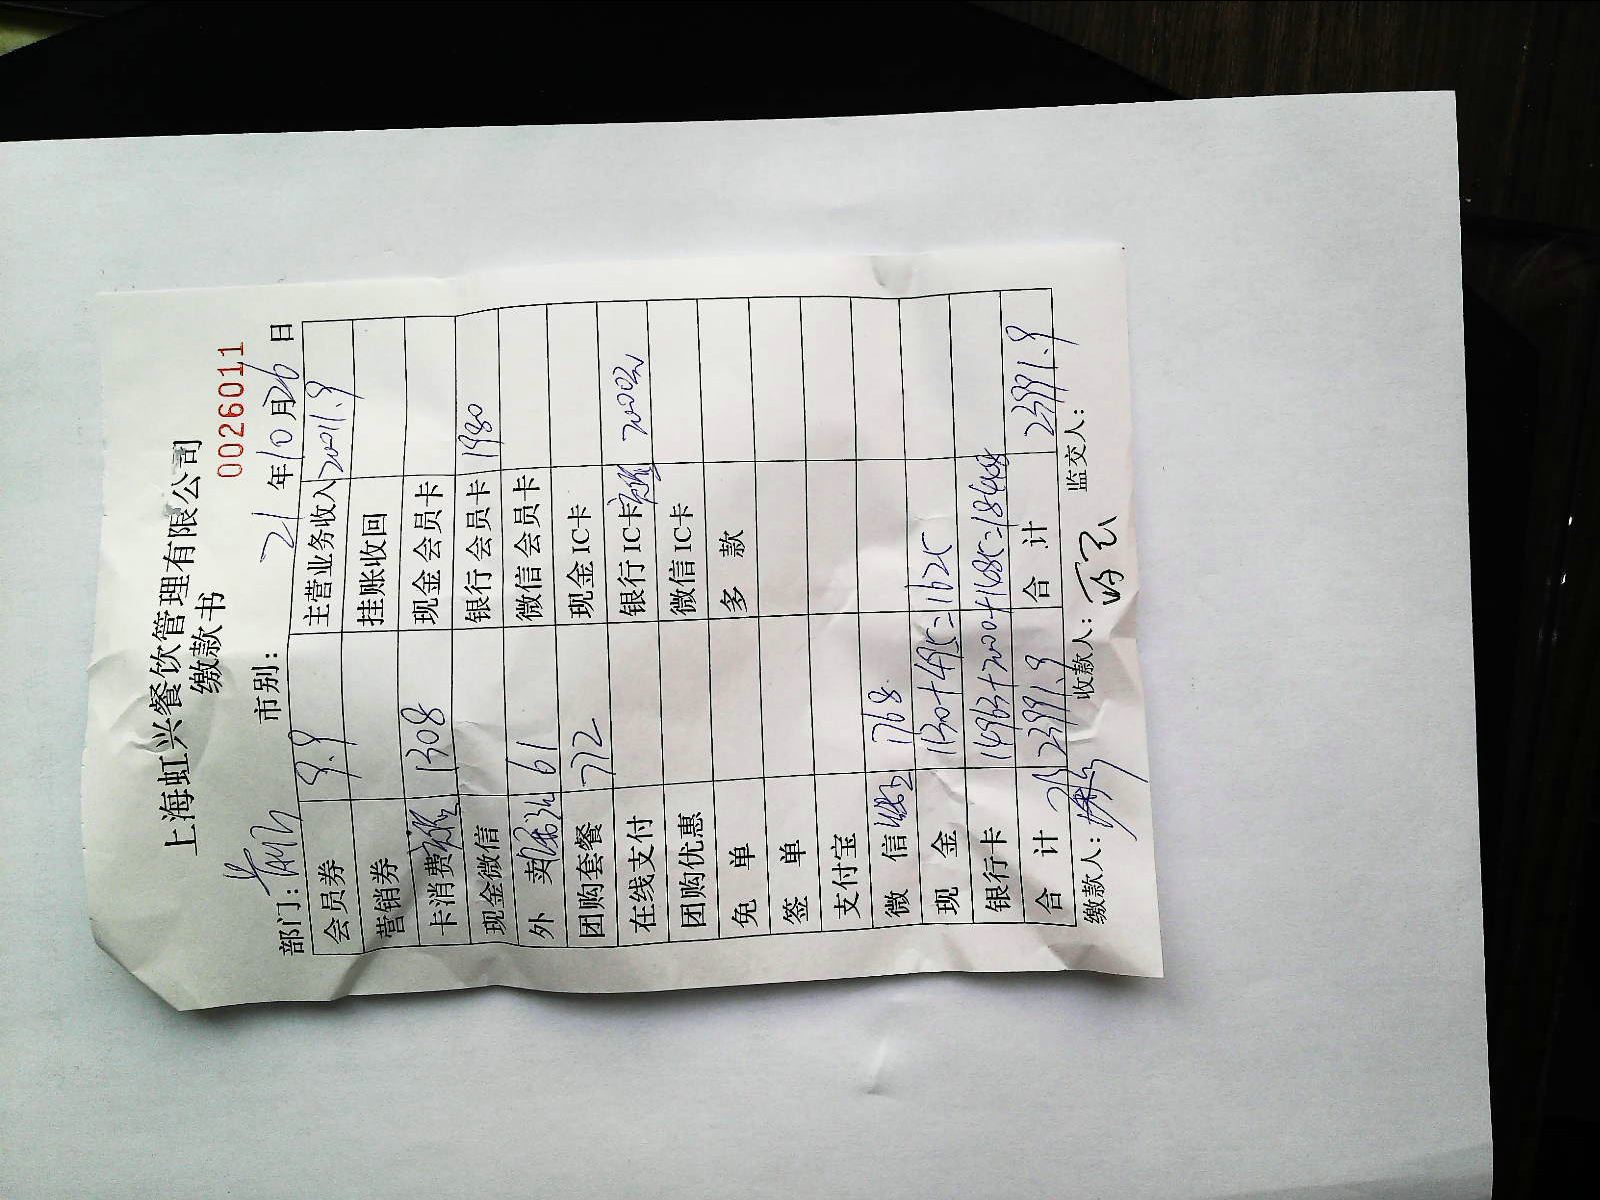 上海虹兴餐饮管理有限公司
缴款书
0026011
部门： 市别： 21年10月26日
会员券 9.9 主营业务收入 20011.9
营销券 挂账收回
卡消费 1308 现金会员卡
现金微信 银行会员卡 1980
外 卖 61 微信会员卡
团购套餐 772 现金IC卡
在线支付 银行IC卡 2000
团购优惠 微信IC卡
免 单 多 款
签 单
支付宝
微 信 1768
现 金 1130+495=1625
银行卡 14963+2000+1485=18448
合 计 23991.9 合 计 23991.9
缴款人： 收款人： 监交人：